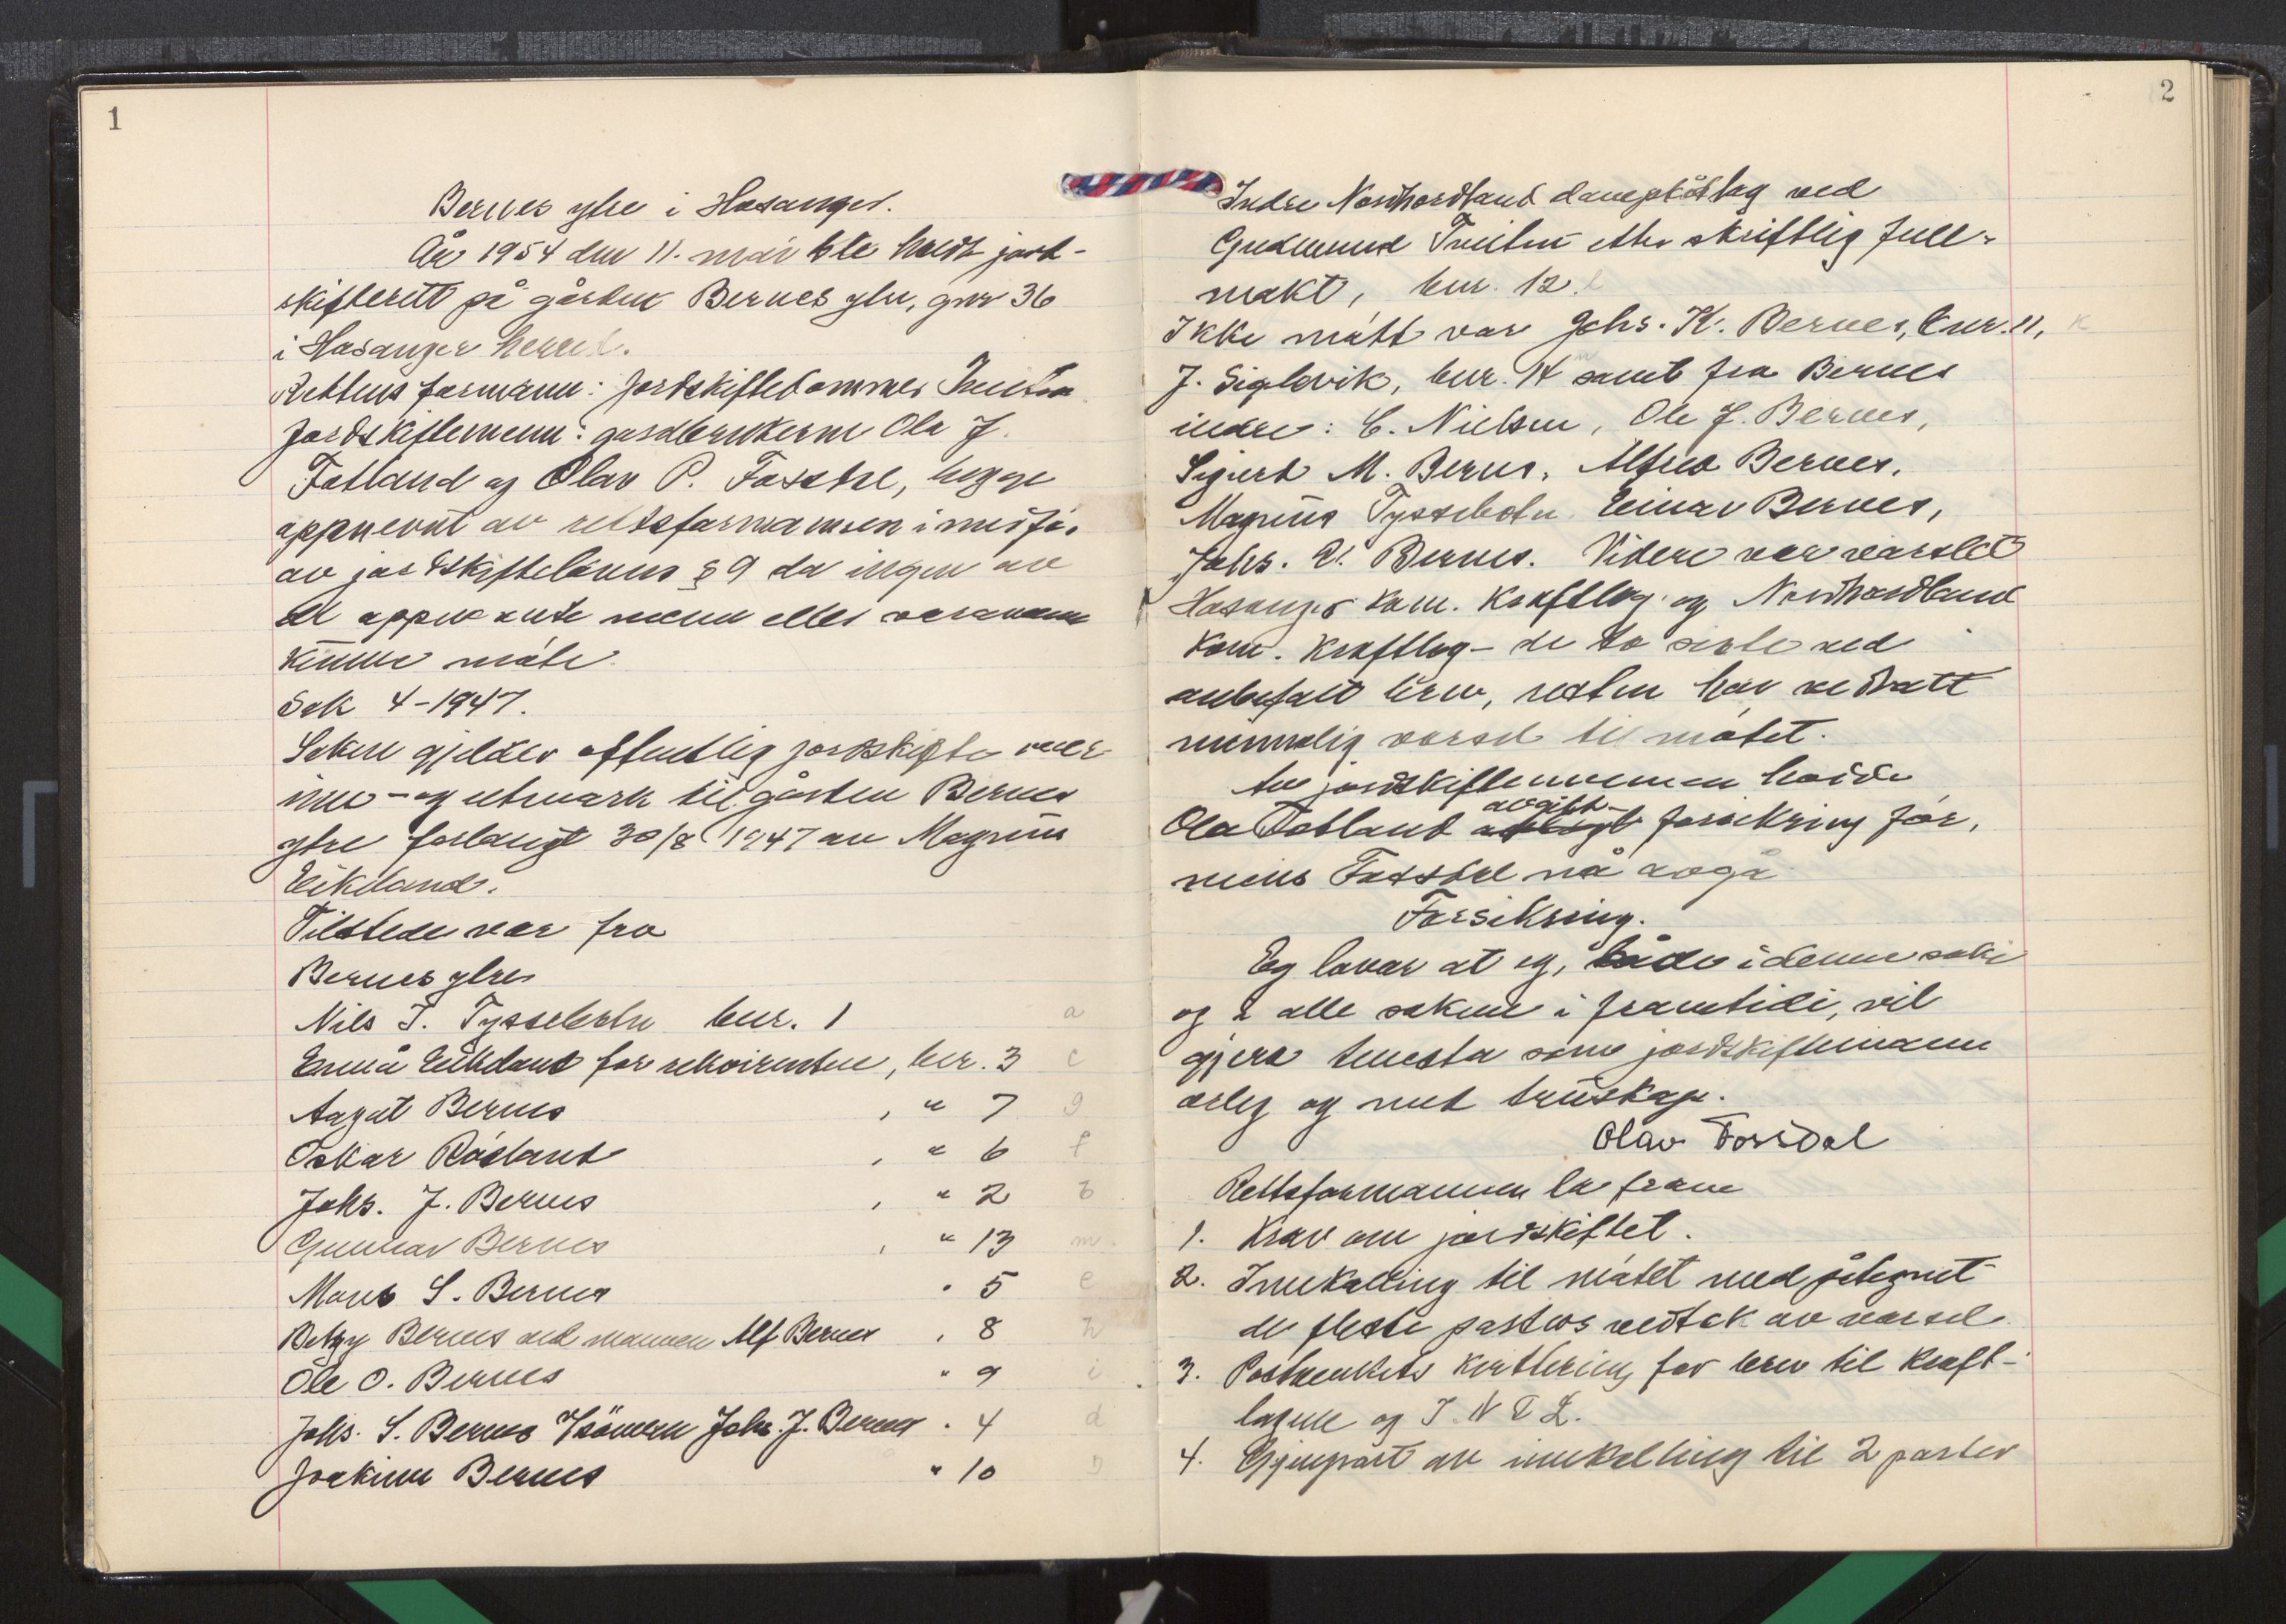 1
Bernes ytre i Hosanger.
År 1954 den 11. mai ble holdt jord-
skifterett på gården Bernes ytre, gnr 36
i Hosanger herred.
Rettens formann: jordskiftedommer
Jordskiftemenn: gardbrukerne Ola J.
Fotland og Olav P. Fossdal, begge
oppnevnt av rettsformannen i medför
av jordskiftelovens § 9 da ingen av
de oppnevnte menn eller varamenn
kunne möte.
Sak 4-1947.
Saken gjelder offentlig jordskifte over
inn- og utmark til gården Bernes
ytre forlangt 30/8 1947 av Magnus
Eikeland.
Tilstede var fra
Bernes ytre
Nils T. Tyssebotn bnr. 1 a
Enma Eikeland for rekvirenten, bnr. 3 c
Aagot Bernes , " 7 g
Oskar Råsland , " 6 f
Johs. J. Bernes , " 2 b
Gunnar Bernes , " 13 m
Mons S. Bernes " 5 e
Betzy Bernes ved mannen Alf Bernes , 8 h
Ole O. Bernes " 9 i
Johs. S. Bernes v/sönnen Johs. J. Bernes " 4 d
Joakim Bernes " 10
2
Indre Nordhordland dampskipslag ved
Gudmund etter skriftlig full-
makt, bnr. 12. l
Ikke mött var Johs. K. Bernes, bnr. 11, k
J. Siglevik, bnr. 14 samt fra Bernes
indre: C. Nielsen, Ole J. Bernes,
Sigurd M. Bernes, Alfred Bernes,
Magnus Tyssebotn Einar Bernes,
Johs. Bernes. Videre var varslet
Hosanger kom. kraftlag og Nordhordland
kom. kraftlag - de to siste ved
anbefalt brev, resten har vedtatt
munnlig varsel til mötet.
Av jordskiftemennene hadde
Ola Fotland avgitt forsikring för,
mens Fossdal nå avga
Forsikring.
Eg lovar at eg, både i denne saki
og i alle sakene i framtidi, vil
gjera tenesta som jordskiftemann
ærleg og med truskap.
Olav Fossdal
Rettsformannen la fram
1. Krav om jordskiftet.
2. Innkalling til mötet med påtegnet
de fleste parters vedtak av varsel.
3. Postverkets kvittering for brev til kraft-
lagene og I N D L.
4. Gjenpart av innkalling til 2 parter